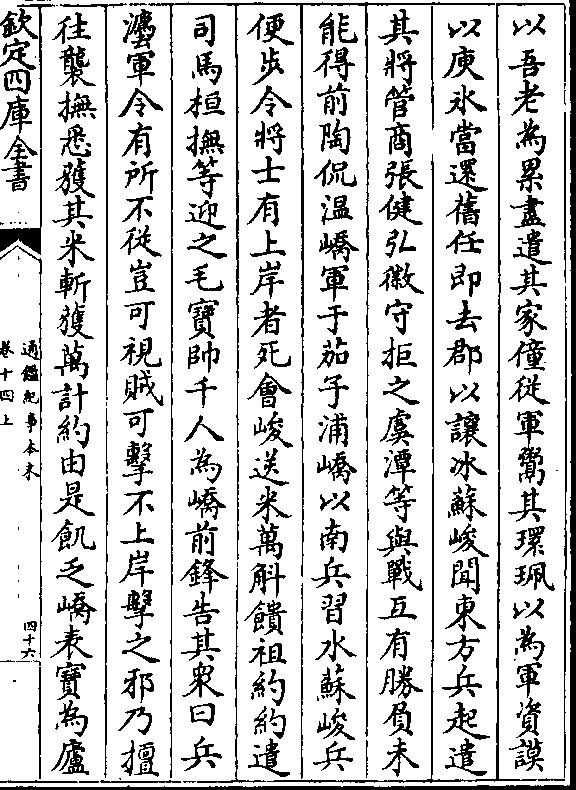 以吾老為累盡遣其家僮從軍鬻其環珮以為軍資謨
以庾氷當還舊任即去郡以讓冰蘇峻聞東方兵起遣
其將管商張健弘徽守拒之虞潭等與戰互有勝負未
能得前陶侃温嶠軍于茄子浦嶠以南兵習水蘇峻兵
便步令將士有上岸者死會峻送米萬斛饋祖約約遣
司馬桓撫等迎之毛寶帥千人為嶠前鋒告其衆曰兵
灋軍令有所不從豈可視賊可擊不上岸擊之邪乃擅
往襲撫悉獲其米斬獲萬計約由是飢乏嶠表寶為廬
欽定四庫全書
通鑑紀事本末
卷十四上
四十六